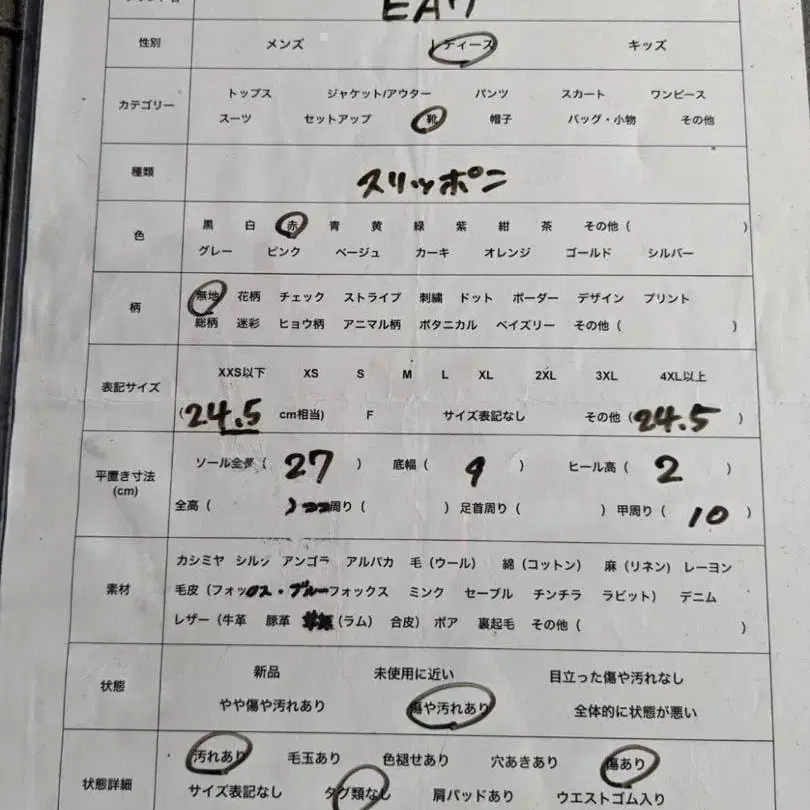 EA7
性別 メンズ レディース キッズ
トップス ジャケット/アウター パンツ スカート ワンピース
カテゴリー
スーツ セットアップ 靴 帽子 バッグ・小物 その他
種類 スリッポン
黒 白 赤 青 黄 緑 紫 紺 茶 その他 ( )
色
グレー ピンク ベージュ カーキ オレンジ ゴールド シルバー
無地 花柄 チェック ストライプ 刺繍 ドット ボーダー デザイン プリント
柄
総柄 迷彩 ヒョウ柄 アニマル柄 ボタニカル ペイズリー その他 ( )
XXS以下 XS S M L XL 2XL 3XL 4XL以上
表記サイズ
(24.5 cm相当) F サイズ表記なし その他 (24.5)
平置き寸法 ソール全長 ( 27 ) 底幅 ( 9 ) ヒール高 ( 2 )
(cm)
全高 ( ) ココ周り ( ) 足首周り ( ) 甲周り ( 10 )
カシミヤ シルク アンゴラ アルパカ 毛 (ウール) 綿 (コットン) 麻 (リネン) レーヨン
素材 毛皮 (フォックス・ブルーフォックス ミンク セーブル チンチラ ラビット) デニム
レザー (牛革 豚革 (ラム) 合皮) ボア 裏起毛 その他 ( )
新品 未使用に近い 目立った傷や汚れなし
状態
やや傷や汚れあり 傷や汚れあり 全体的に状態が悪い
汚れあり 毛玉あり 色褪せあり 穴あきあり 傷あり
状態詳細
サイズ表記なし タグ類なし 肩パッドあり ウエストゴム入り